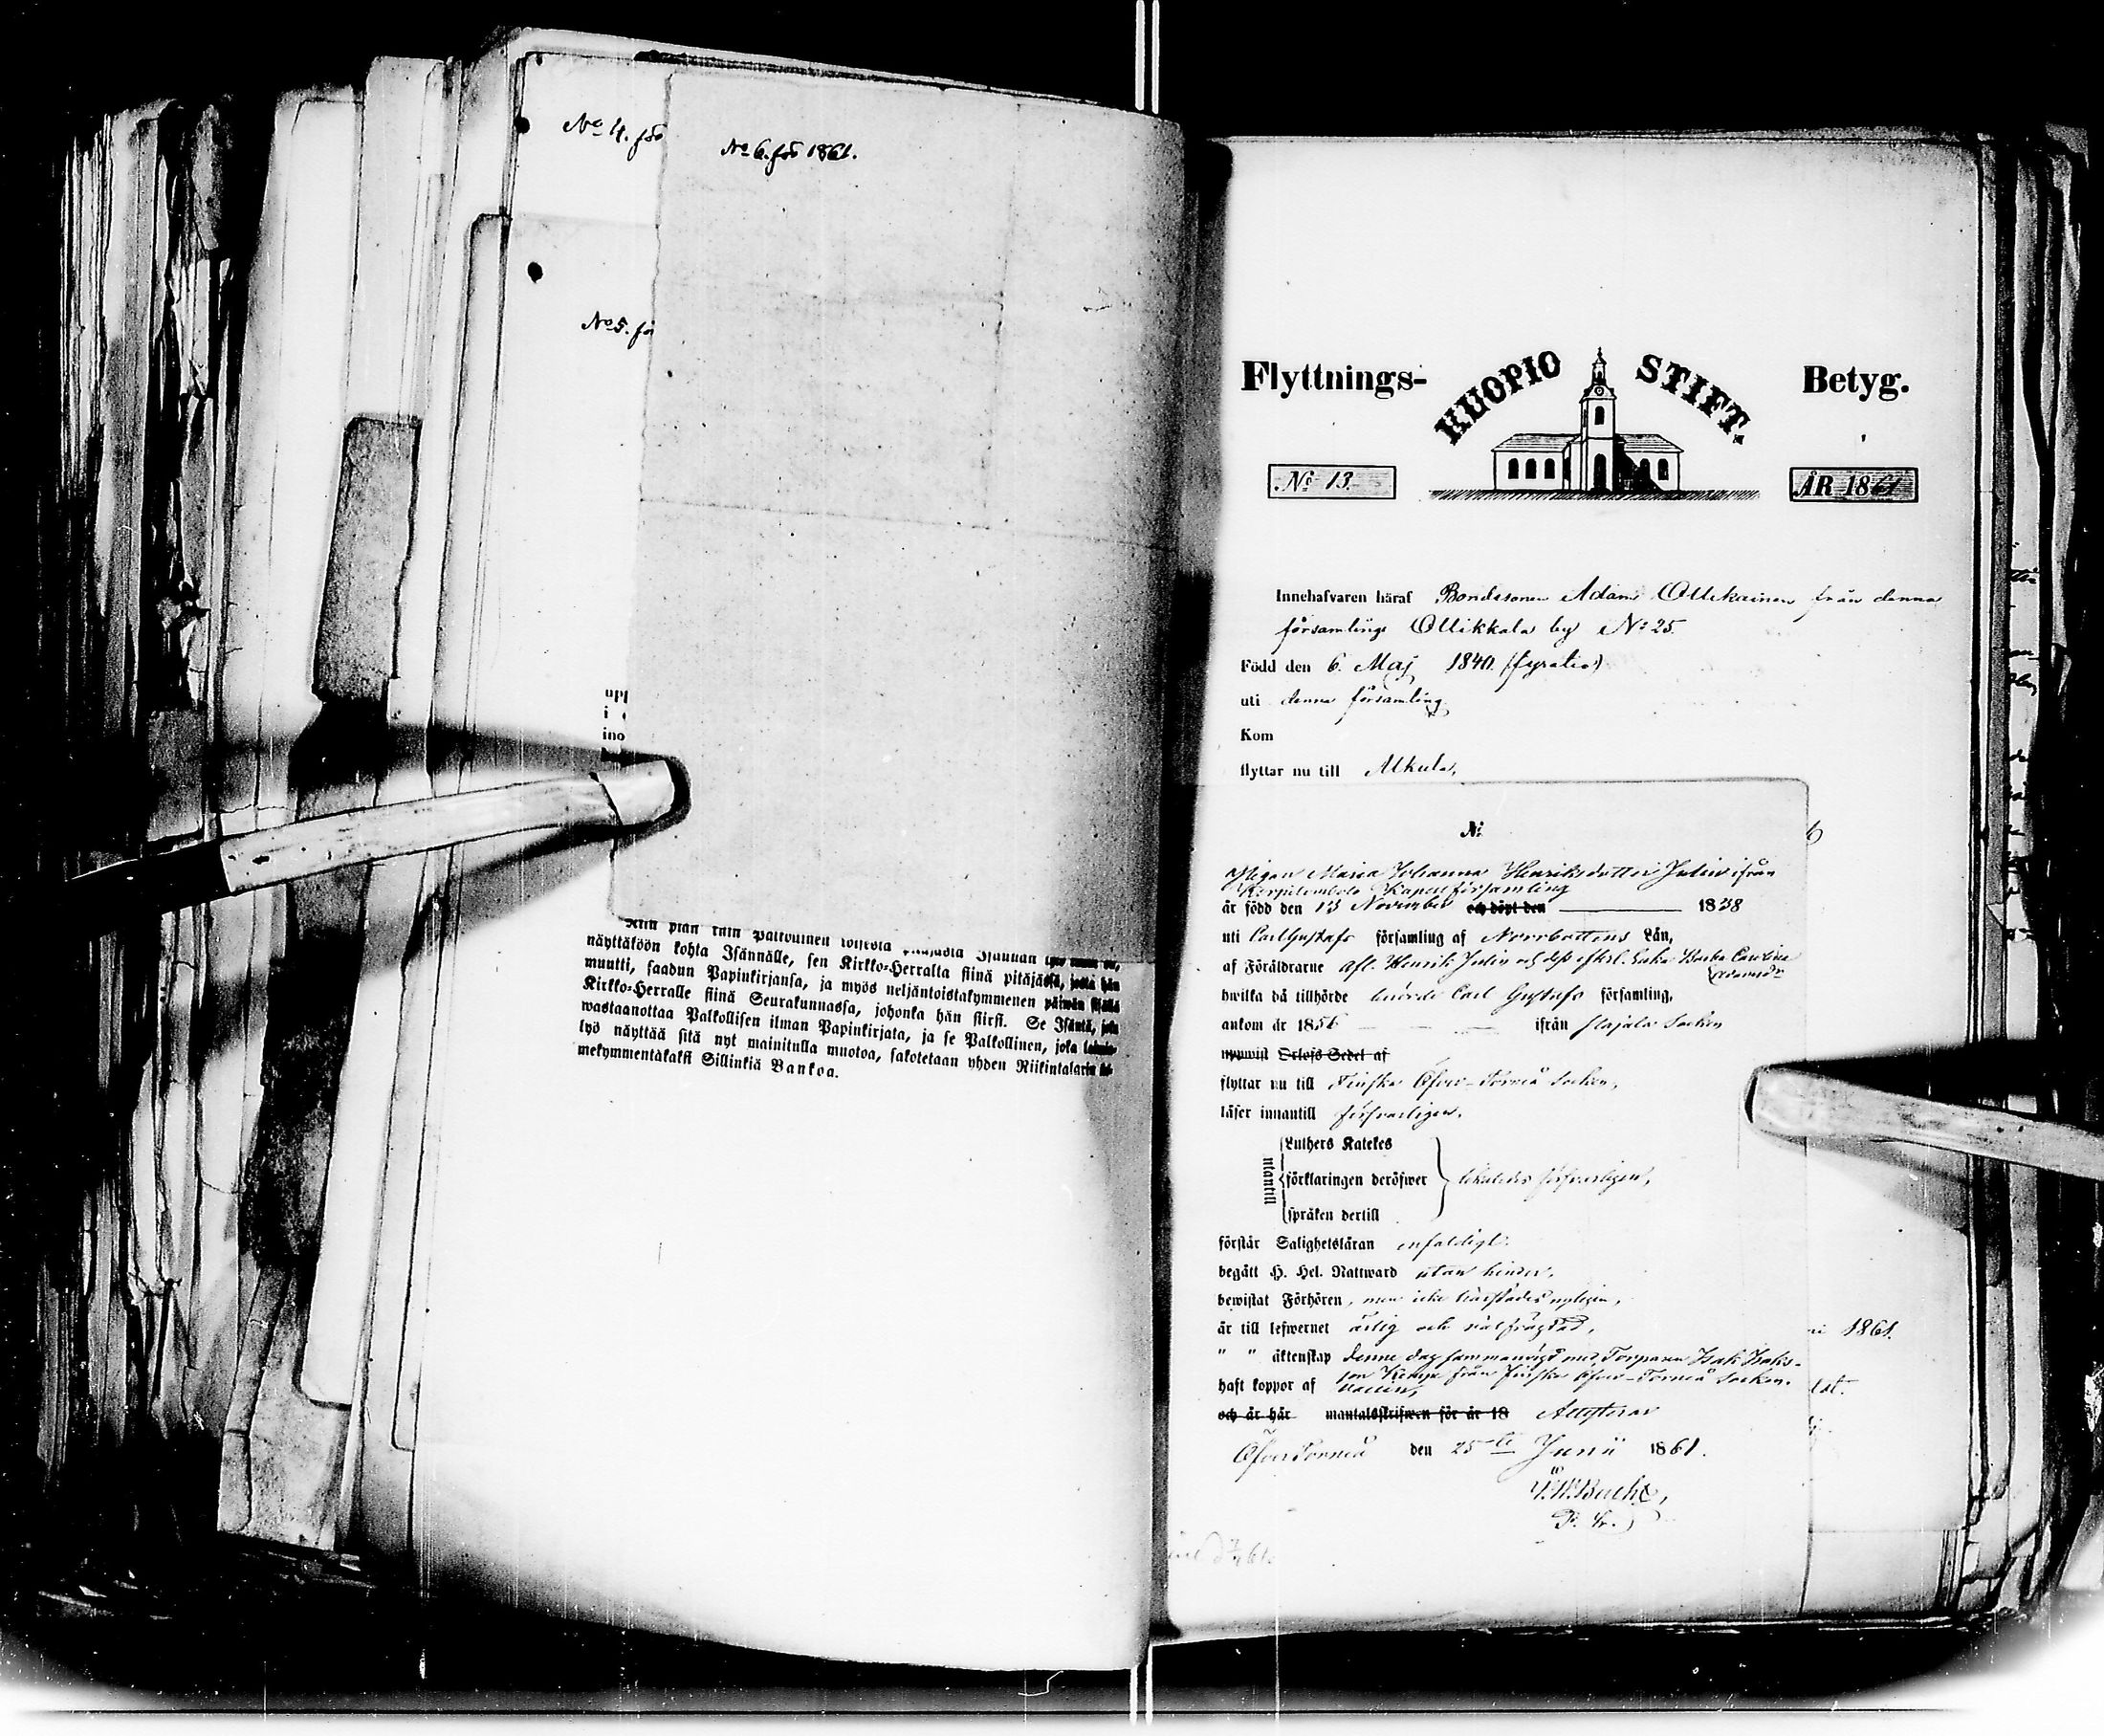 No 4. för
No 6. för 1861.
No 5. fö
upp
i
ino
näyttäköön kohta Isännälle, sen Kirkko-Herralta siinä pitäjässä, josta hän
muutti, saadun Papinkirjansa, ja myös neljäntoistakymmenen päiwän sisällä
Kirkko-Herralle siinä Seurakunnassa, johonka hän siirsi. Se Isäntä, joka
wastaanottaa Palkollisen ilman Papinkirjata, ja se Palkollinen, joka
lyö näyttää sitä nyt mainitulla muotoa, sakotetaan yhden Riikintalarin
mekymmentäkaksi Sillinkiä Bankoa.
Flyttnings- KUOPIO STIFT. Betyg.
No 13. ÅR 1861
Innehafvaren häraf Bondesonen Adam Ollikainen från denna
församlings Ollikkala by No 25.
Född den 6. Maj 1840. (fyratio)
uti denna församling
Kom
flyttar nu till Alkula,
No
Pigan Maria Johanna Henriksdotter Julin ifrån
Korpilombolo Kapell församling
är född den 13 November och döpt den 1838
uti Carl Gustafs församling af Norrbottens Län,
af Föräldrarne Afl. Henrik Julin och dess efterl. Enka Carolina
hwilka då tillhörde Carl Gustafs församling,
ankom år 1856 ifrån Pajala Socken
uppwist Orlofs Sedel af
flyttar nu till Finska Öfver-Torneå Socken,
läser innantill försvarligen,
utantill
Luthers Katekes
förklaringen deröfwer likaledes försvarligen,
språken dertill
förstår Salighetsläran enfaldigt.
begått H. Hel. Nattward utan hinder,
bewistat Förhören, men icke härstädes nyligen,
är till lefwernet ärlig och välfrägdad,
" " äktenskap denne dag sammanvigd med Torparen Isak Isaks-
son Kemp från Finska Öfver-Torneå Socken.
haft koppor af vaccin,
och är här mantalsskrifwen för år 18 Attesterar
ÖfverTorneå den 25te Junii 1861.
P. W. Bucht,
ni 1861.